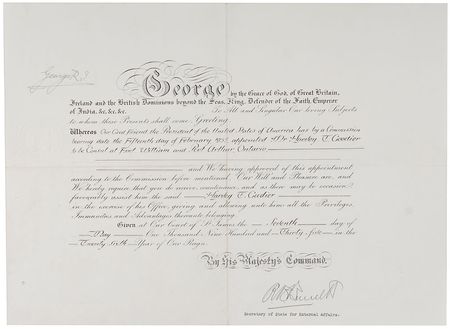 George R. I.
George by the Grace of God, of Great Britain,
Ireland and the British Dominions beyond the Seas, King, Defender of the Faith, Emperor
of India, &c. &c. &c. To All and Singular Our loving Subjects
to whom these Presents shall come, Greeting.
Whereas Our Good Friend the President of the United States of America has by a Commission
bearing date the Fifteenth day of February appointed Mr Harley
to be Consul at Fort William and Port Arthur Ontario
and We having approved of this appointment
according to the Commission before mentioned, Our Will and Pleasure are, and
We hereby require that you do receive, countenance, and as there may be occasion
favourably assist him the said Harley
in the exercise of his Office, giving and allowing unto him all the Privileges,
Immunities and Advantages thereunto belonging.
Given at Our Court of St James the day of
May One Thousand Nine Hundred and Thirty five in the
Twenty sixth Year of Our Reign.
By His Majesty's Command.
Secretary of State for External Affairs.